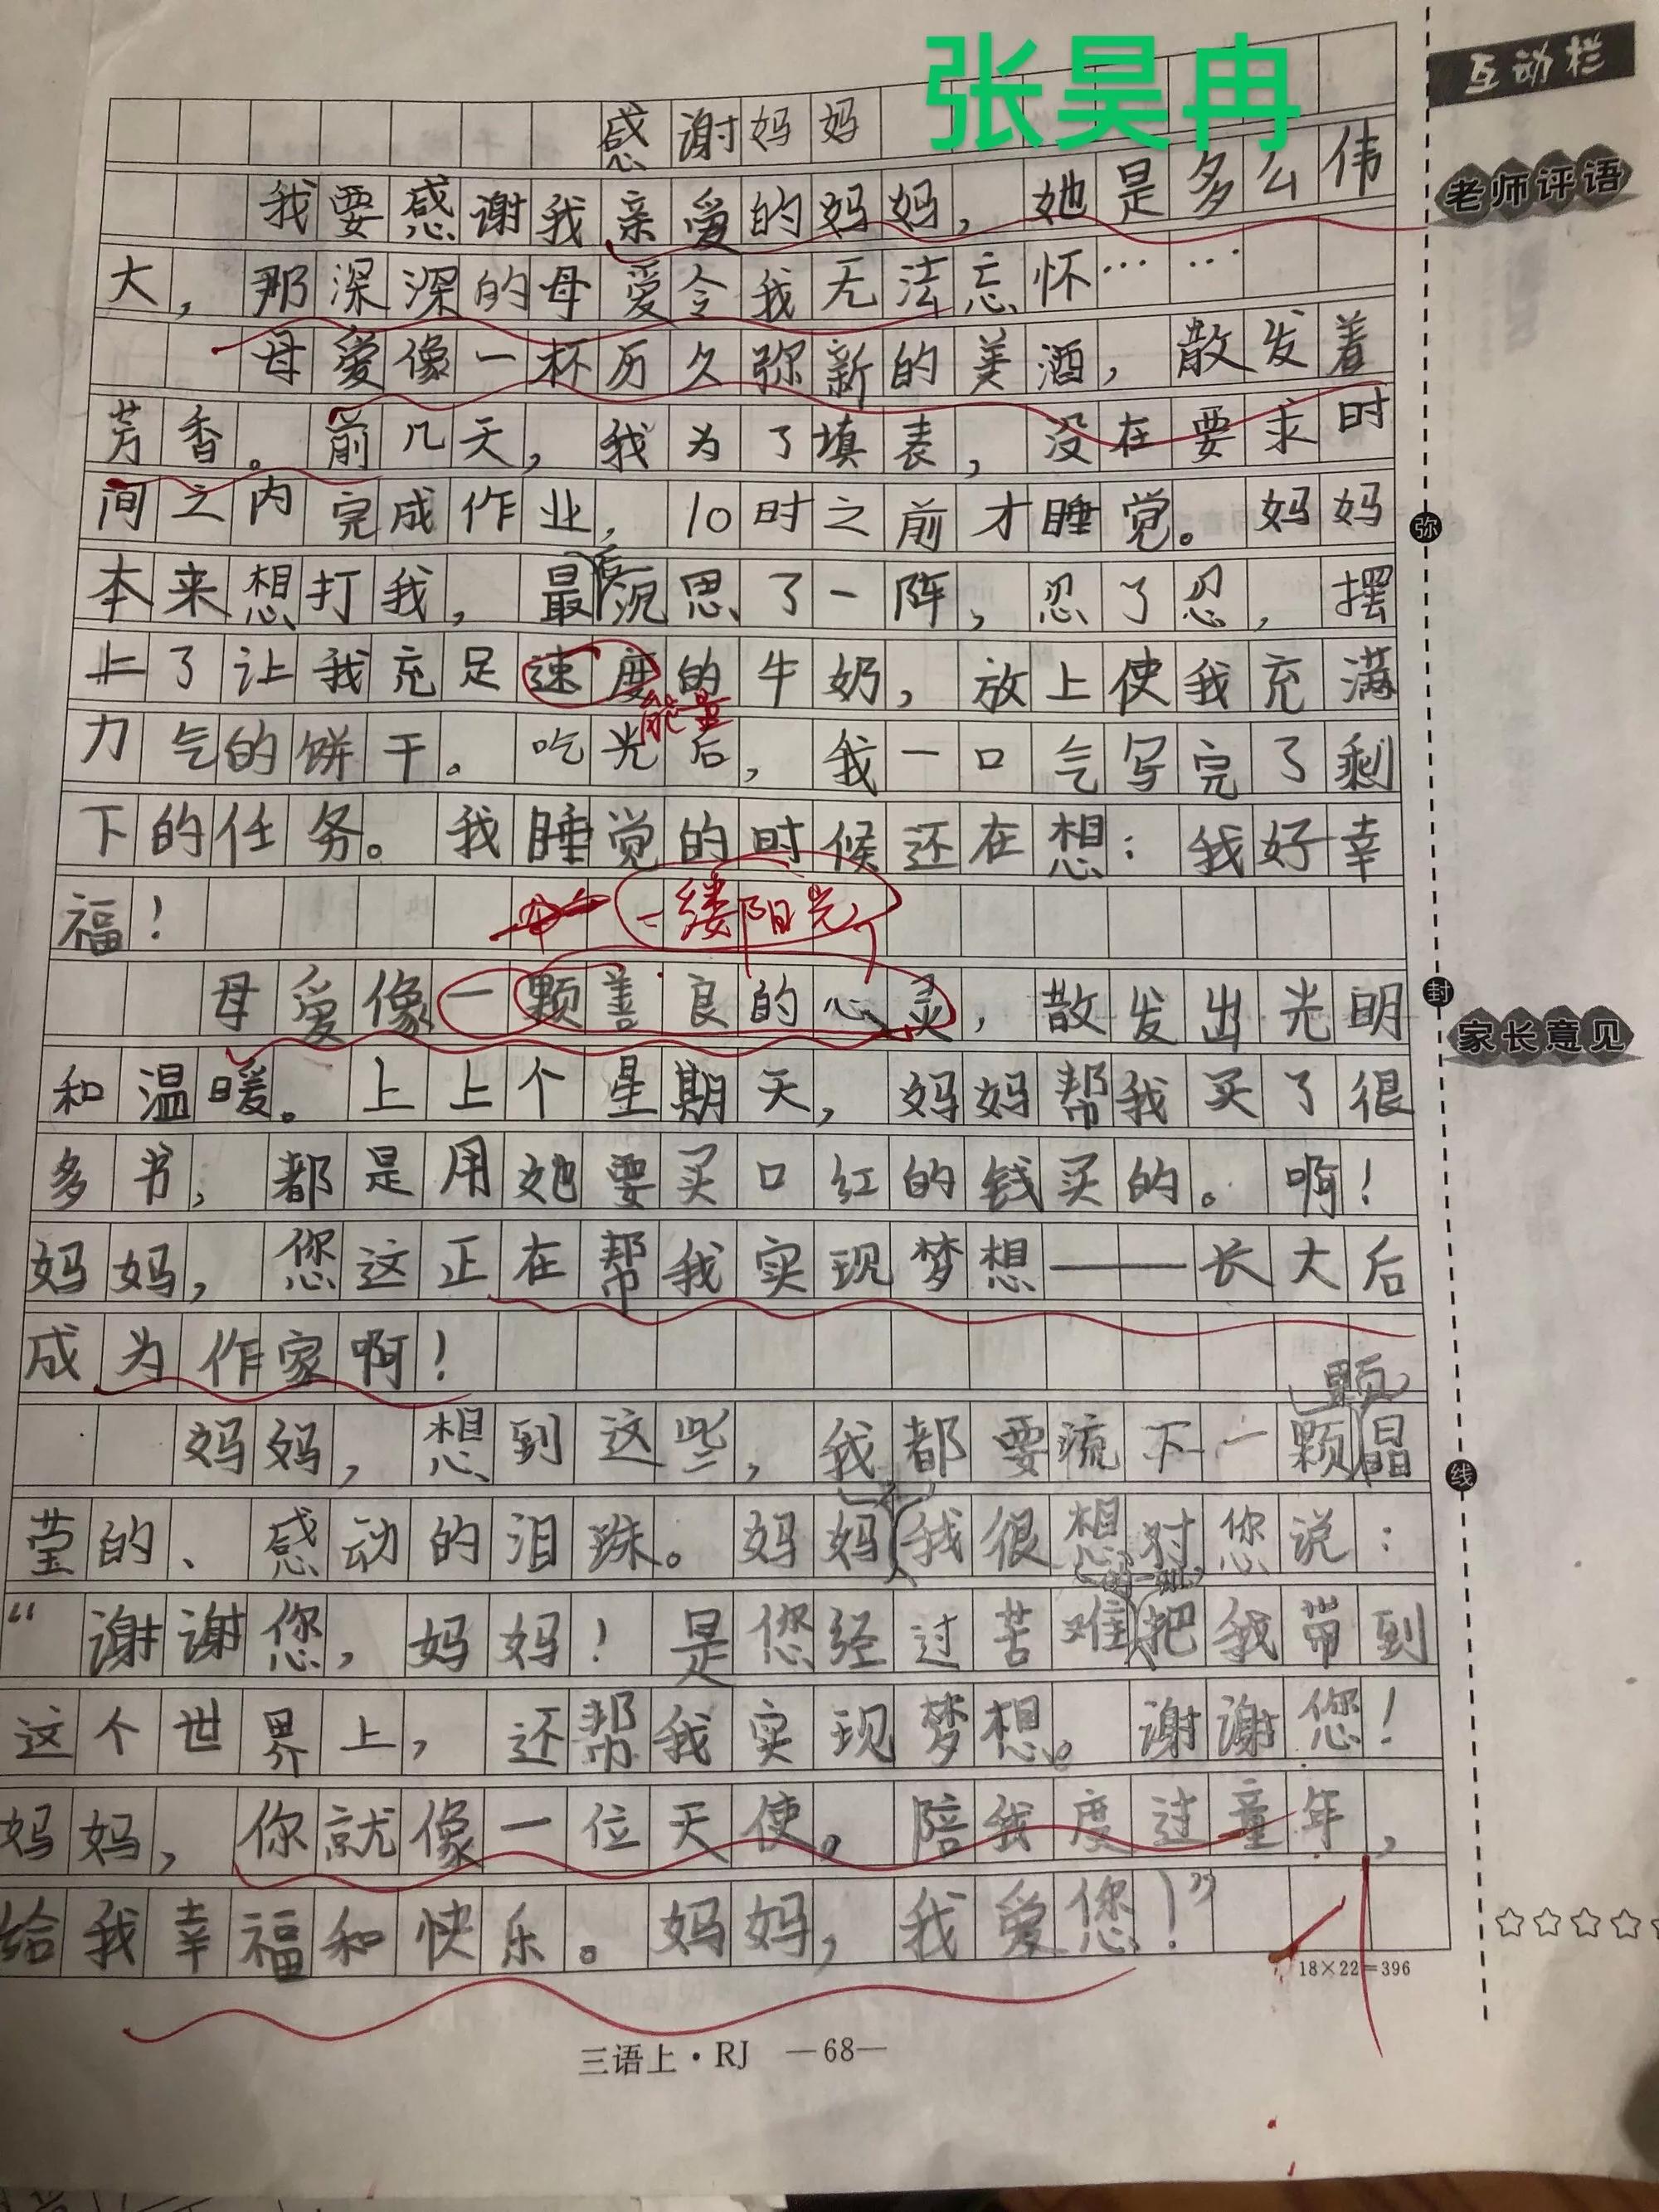 张昊冉
互动栏
感谢妈妈
老师评语
我要感谢我亲爱的妈妈，她是多么伟
大，那深深的母爱令我无法忘怀……
母爱像一杯历久弥新的美酒，散发着
芳香。前几天，我为了填表，没在要求时
间之内完成作业，10时之前才睡觉。妈妈
弥
本来想打我，最后沉思了一阵，忍了忍，摆
上了让我充足速度的牛奶，放上使我充满
能量
力气的饼干。吃光后，我一口气写完了剩
下的任务。我睡觉的时候还在想：我好幸
福！
一缕阳光
母爱像一颗善良的心灵，散发出光明
封
家长意见
和温暖。上上个星期天，妈妈帮我买了很
多书，都是用她要买口红的钱买的。啊！
妈妈，您这正在帮我实现梦想——长大后
成为作家啊！
妈妈，想到这些，我都要流下一颗颗晶
线
莹的、感动的泪珠。妈妈，我很想对您说：
“谢谢您，妈妈！是您经过苦难把我带到
这个世界上，还帮我实现梦想。谢谢您！
妈妈，你就像一位天使。陪我度过童年，
给我幸福和快乐。妈妈，我爱您！”
18×22=396
三语上·RJ —68—